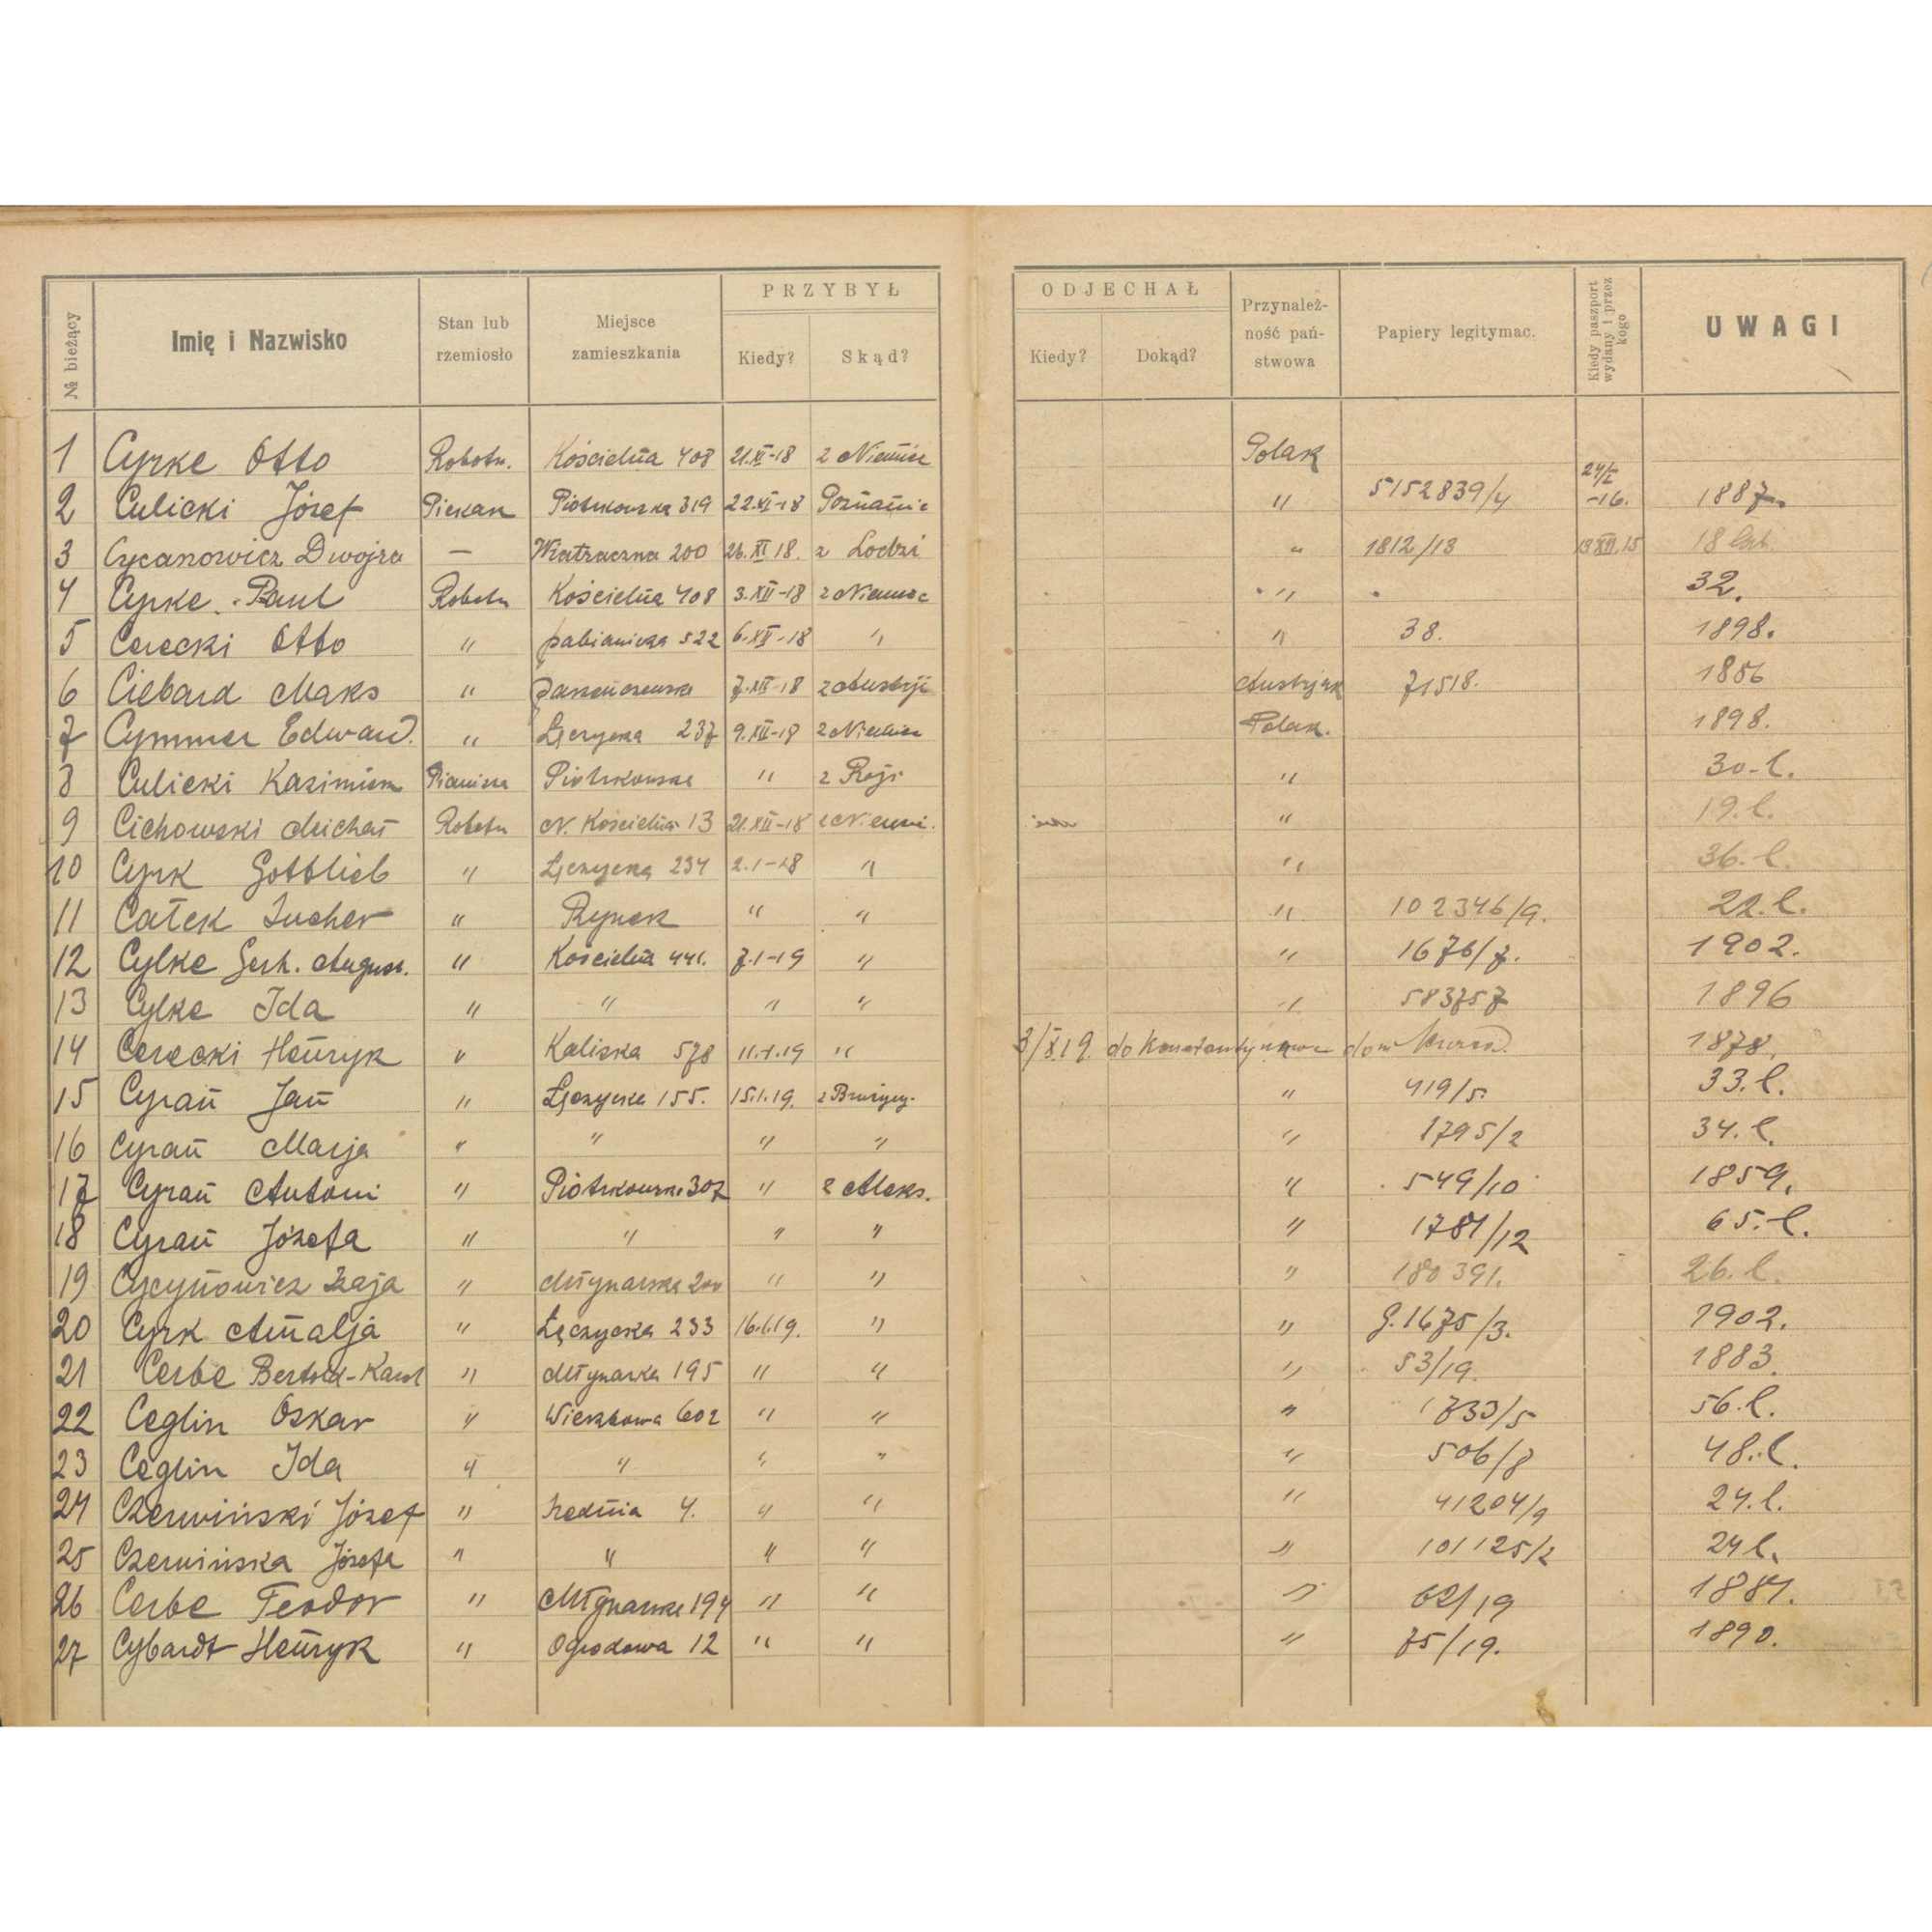 № bieżący Imię i Nazwisko Stan lub rzemiosło Miejsce zamieszkania PRZYBYŁ Kiedy? Skąd? ODJECHAŁ Kiedy? Dokąd? Przynależ- ność pań- stwowa Papiery legitymac. Kiedy paszport wydany i przez kogo UWAGI
1 Cyrke Otto Robotn. Kościelna 408 21.XI-18 z Niemiec Polak
2 Culicki Józef Piekarz Piotrkowska 319 22.XI-18 Poznanie " 5152839/4 24/I -16. 1887.
3 Cycanowicz Dwojra — Wiatraczna 200 26.XI 18. z Łodzi " 1812/13 13 XII.15 18 lat
4 Cyrke Paul Robotn Kościelna 408 3.XII-18 z Niemiec " 32.
5 Cerecki Otto " pabianicka 522 6.XII-18 " " 38. 1898.
6 Ciebard Maks " 7.XII-18 z Austrji Austryjak 71518. 1886
7 Cymmer Edward. " Łęczycka 237 9.XII-18 z Niemiec Polak. 1898.
8 Culicki Kazimierz Piotrkowska " z Rosji " 30-l.
9 Cichowski Michał Robotn N. Kościelna 13 21.XII-18 z Niemi. " 19.l.
10 Cyrk Gottlieb " Łęczycka 234 2.1-18 " " 36.l.
11 Całek Lucher " Rynek " " " 102346/9. 22.l.
12 Cylke Gerh. August. " Kościelna 441. 7.1-19 " " 1676/7. 1902.
13 Cylke Ida " " " " " 583757 1896
14 Cerecki Henryk " Kaliska 578 11.1.19 " 3/X19. do Konstantynowa dom 1878.
15 Cyrań Jan " Łęczycka 155. 15.1.19. z " 419/5. 33.l.
16 Cyrań Marja " " " " " 1795/2 34.l.
17 Cyrań Antoni " Piotrkowska 307 " z Aleks. " 549/10 1859.
18 Cyrań Józefa " " " " " 1781/12 65.l.
19 Cycynowicz Szaja " Młynarska 200 " " " 180391. 26.l.
20 Cyrk Amalja " Łęczycka 233 16.1.19. " " 9.1675/3. 1902.
21 Cerbe Bertold-Karol " Młynarska 195 " " " 53/19. 1883
22 Ceglin Oskar " Wierzbowa 602 " " " 1733/5 56.l.
23 Ceglin Ida " " " " " 506/8 48.l.
24 Czerwiński Józef " Średnia 4. " " " 41204/9 24.l.
25 Czerwińska Józefa " " " " " 101125/2 24 l.
26 Cerbe Teodor " Młynarska 194 " " " 62/19 1881.
27 Cybardt Henryk " Ogrodowa 12 " " " 75/19. 1890.